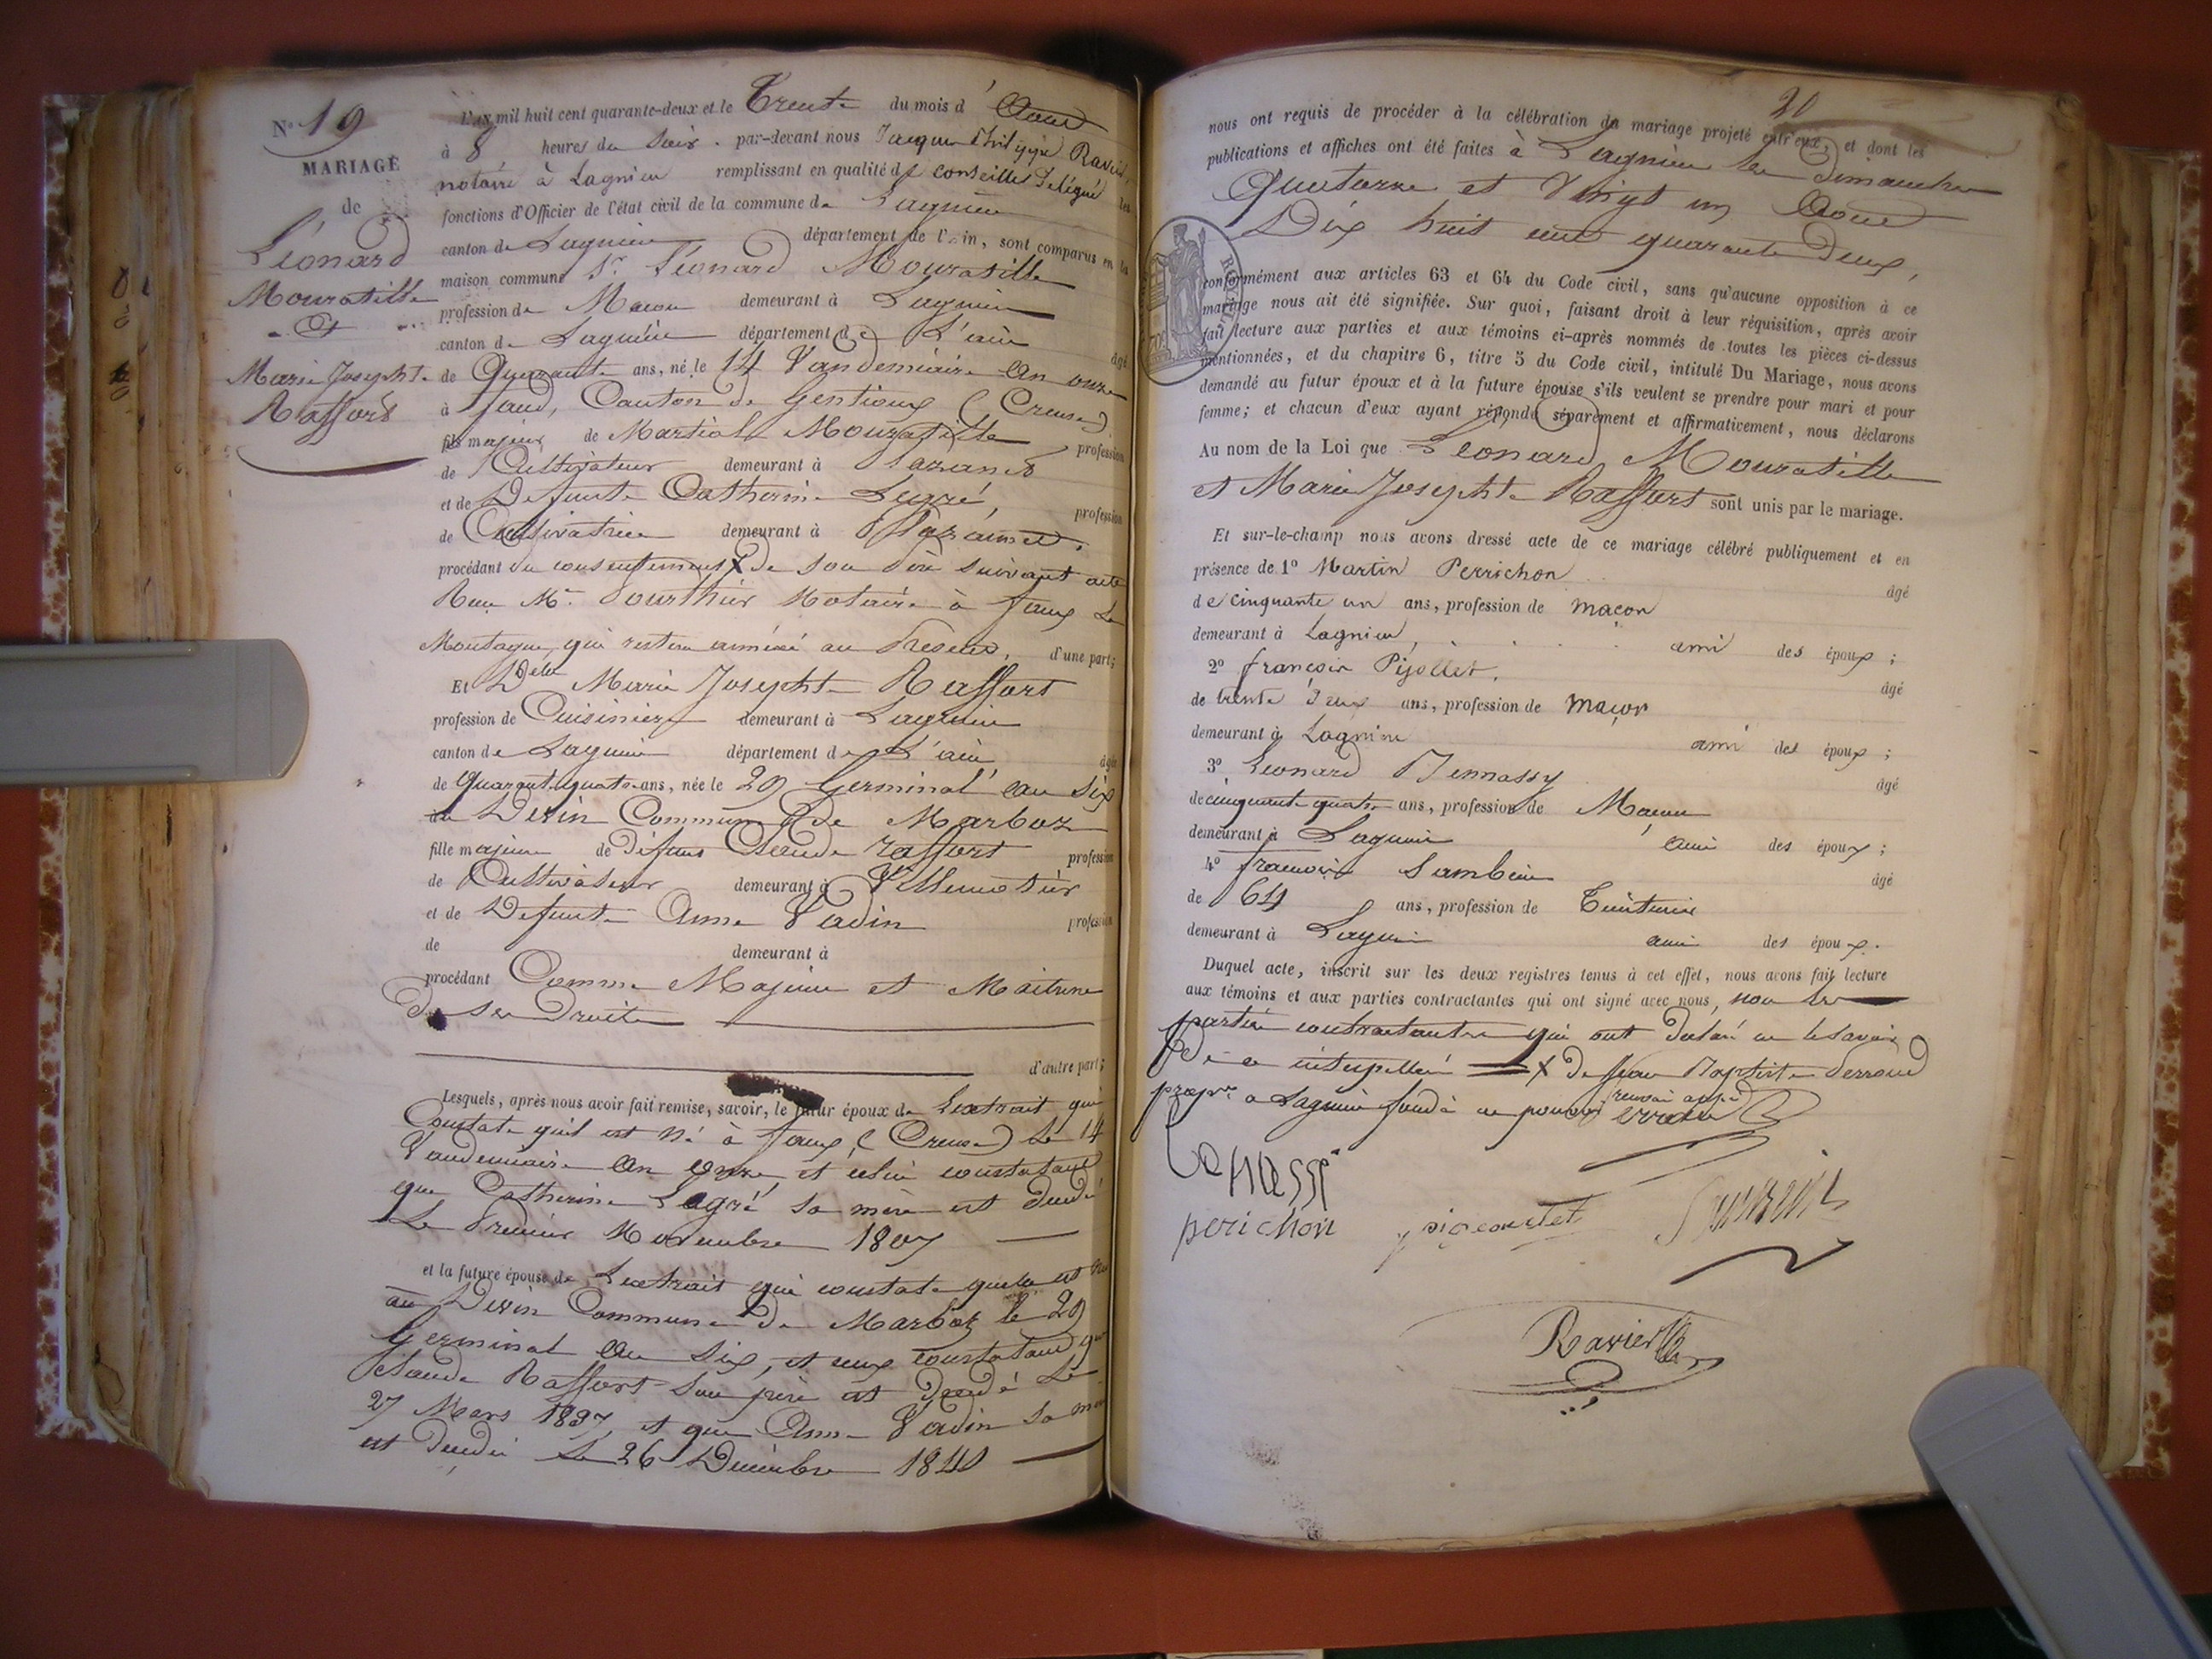 N° 19
MARIAGE
de
Léonard
Mouratille
Et
Marie Josephte
Raffort
L'an mil huit cent quarante-deux et le Trente du mois d'Aout
à 8 heures du Soir. par-devant nous Jacques Philippe Ravier,
notaire à Lagnieu remplissant en qualité de conseiller délégué les
fonctions d'Officier de l'état civil de la commune de Lagnieu
canton de Lagnieu département de l'Ain, sont comparus en la
maison commune Sr. Léonard Mouratille
profession de Macon demeurant à Lagnieu
canton de Lagnieu département de L'ain âgé
de Quarante ans, né le 14 Vandemiaire an onze
à faux, Canton de Gentioux (Creuse)
fils majeur de Martial Mouratille profession
de Cultivateur demeurant à
et de Defunte Catherine Legré, profession
de Cultivatrice demeurant à
procédant du consentement X de son père suivant acte
Reçu Me. Notaire à faux La
Montagne, qui restera annéxé au Présent, d'une part;
Et Delle Marie Josephte Raffort
profession de Cuisinière demeurant à Lagnieu
canton de Lagnieu département de L'ain, âgée
de Quarante quatre ans, née le 29 Germinal an Six
au Devin Commune de Marboz
fille majeure de défunt Claude Raffort profession
de Cultivateur demeurant à Villemotier
et de Defunte Anne Vadin profession
de demeurant à
procédant Comme Majeure et Maitresse
de ses Droits
d'autre part;
Lesquels, après nous avoir fait remise, savoir, le futur époux de Lextrait qui
Constate qu'il est né à faux (Creuse) Le 14
Vandemiaire an onze, et celui constatant
que Catherine Legré sa mère est décédé
Le Premier Novembre 1807
et la future épouse de Lextrait qui constate quelle est née
au Devin Commune de Marboz le 29
Germinal an Six, et ceux constatant que
Claude Raffort son père est décédé Le
27 Mars 1837, et que Anne Vadin sa mère
est décédée Le 26 Décembre 1840
20
nous ont requis de procéder à la célébration du mariage projeté entr'eux, et dont les
publications et affiches ont été faites à Lagnieu les dimanches
Quatorze et Vingt un Aout
Dix huit cent quarante deux,
conformément aux articles 63 et 64 du Code civil, sans qu'aucune opposition à ce
mariage nous ait été signifiée. Sur quoi, faisant droit à leur réquisition, après avoir
fait lecture aux parties et aux témoins ci-après nommés de toutes les pièces ci-dessus
mentionnées, et du chapitre 6, titre 5 du Code civil, intitulé Du Mariage, nous avons
demandé au futur époux et à la future épouse s'ils veulent se prendre pour mari et pour
femme; et chacun d'eux ayant répondu séparément et affirmativement, nous déclarons
Au nom de la Loi que Léonard Mouratille
et Marie Josephte Raffort sont unis par le mariage.
Et sur-le-champ nous avons dressé acte de ce mariage célébré publiquement et en
présence de 1° Martin Perrichon âgé
de cinquante un ans, profession de maçon
demeurant à Lagnieu, ami des époux;
2° françois Pijollet, âgé
de trente deux ans, profession de maçon
demeurant à Lagnieu ami des époux;
3° Léonard âgé
de cinquante quatre ans, profession de Macon
demeurant à Lagnieu ami des époux;
4° francois Sambin âgé
de 64 ans, profession de Teinturier
demeurant à Lagnieu ami des époux.
Duquel acte, inscrit sur les deux registres tenus à cet effet, nous avons fait lecture
aux témoins et aux parties contractantes qui ont signé avec nous, non les
parties contractantes qui ont déclaré ne le savoir
de ce interpellés X de Jean Baptiste Perroud
propre. a Lagnieu fondé de pouvoir
renvoi approuvé
perichon
Ravier